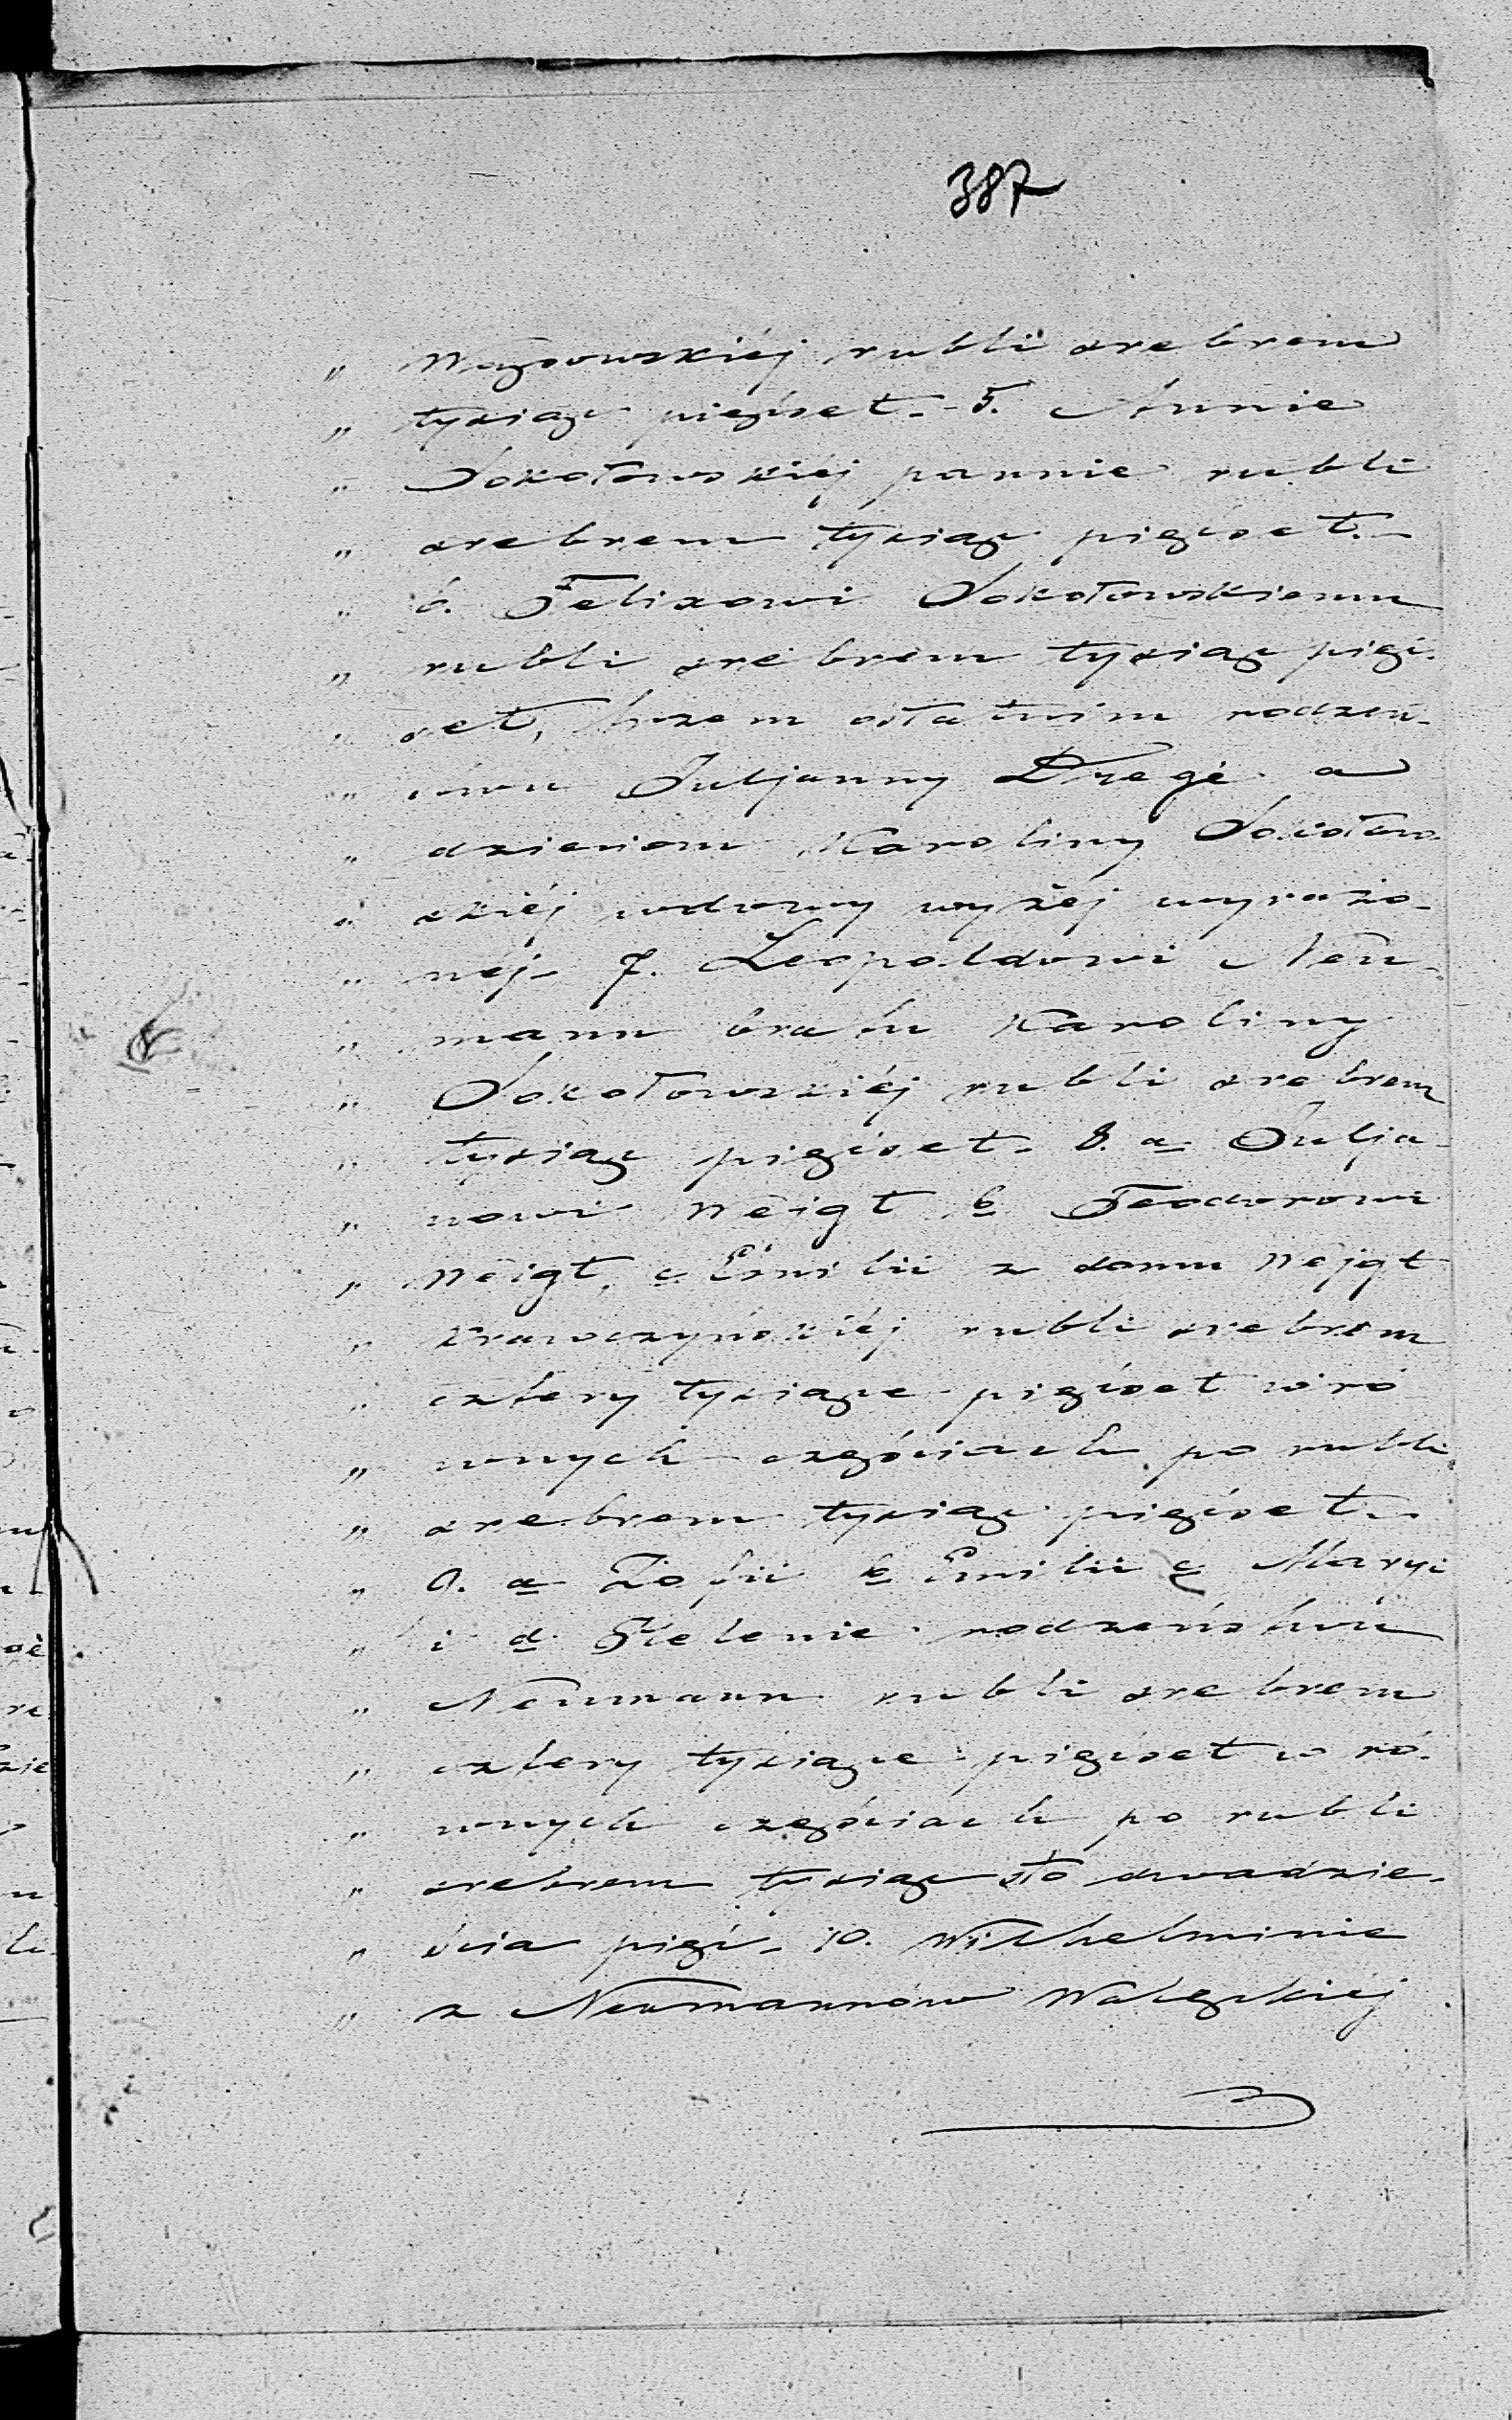 387
„ Mazowskiéj rubli srebrem
„ tysiąc pięćset. - 5. Annie
„ Sokołowskiéj pannie rubli
„ srebrem tysiąc pięćset. -
„ 6. Felixowi Sokołowskiemu
„ rubli srebrem tysiąc pięć-
„ set, trzem ostatnim rodzeń-
„ stwu Juljanny Drege a
„ dzieciom Karoliny Sokołow-
„ skiéj wdowy wyżéj wyrażo-
„ néj - 7. Leopoldowi Neu-
„ mann bratu Karoliny
„ Sokołowskiéj rubli srebrem
„ tysiąc pięćset - 8. a Julja-
„ nowi Weigt b Teodorowi
„ Weigt, c Emilii z domu Wejgt
„ Krawczyńskiéj rubli srebrem
„ cztery tysiące pięćset w ró
„ wnych częściach po rubli
„ srebrem tysiąc pięćset -
„ 9. a Zofii b Emilii c Maryi
„ i d Helenie rodzeństwu
„ Neumann rubli srebrem
„ cztery tysiące pięćset w ró-
„ wnych częściach po rubli
„ srebrem tysiąc sto dwadzie-
„ ścia pięć - 10. Wilhelminie
„ z Neumannów Walęckiéj